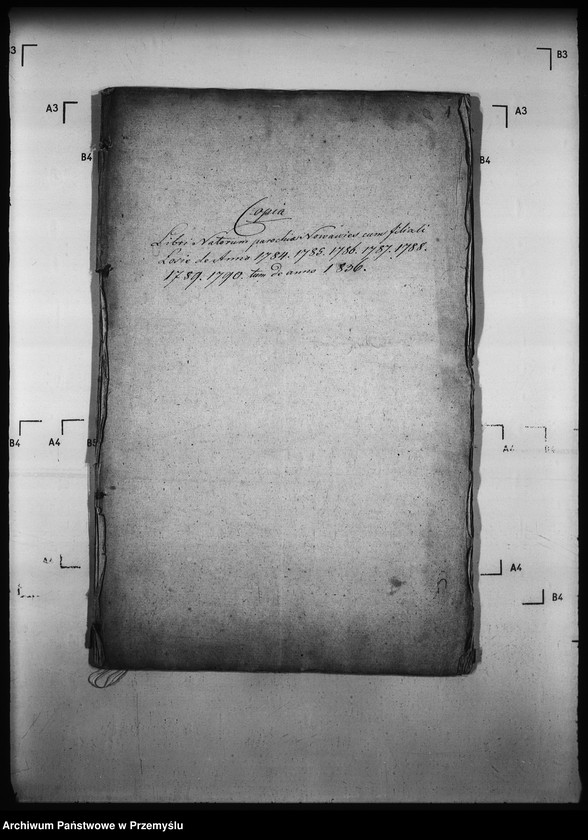 B3
B3
A3
A3
B4
B4
1
Copia
Libri Natorum parochiæ Nowawies cum filiali
Łosie de Anno 1784. 1785. 1786. 1787. 1788.
1789. 1790. tum de anno 1836.
B4
A4
B5
A4
B4
A4
A4
B4
Archiwum Państwowe w Przemyślu